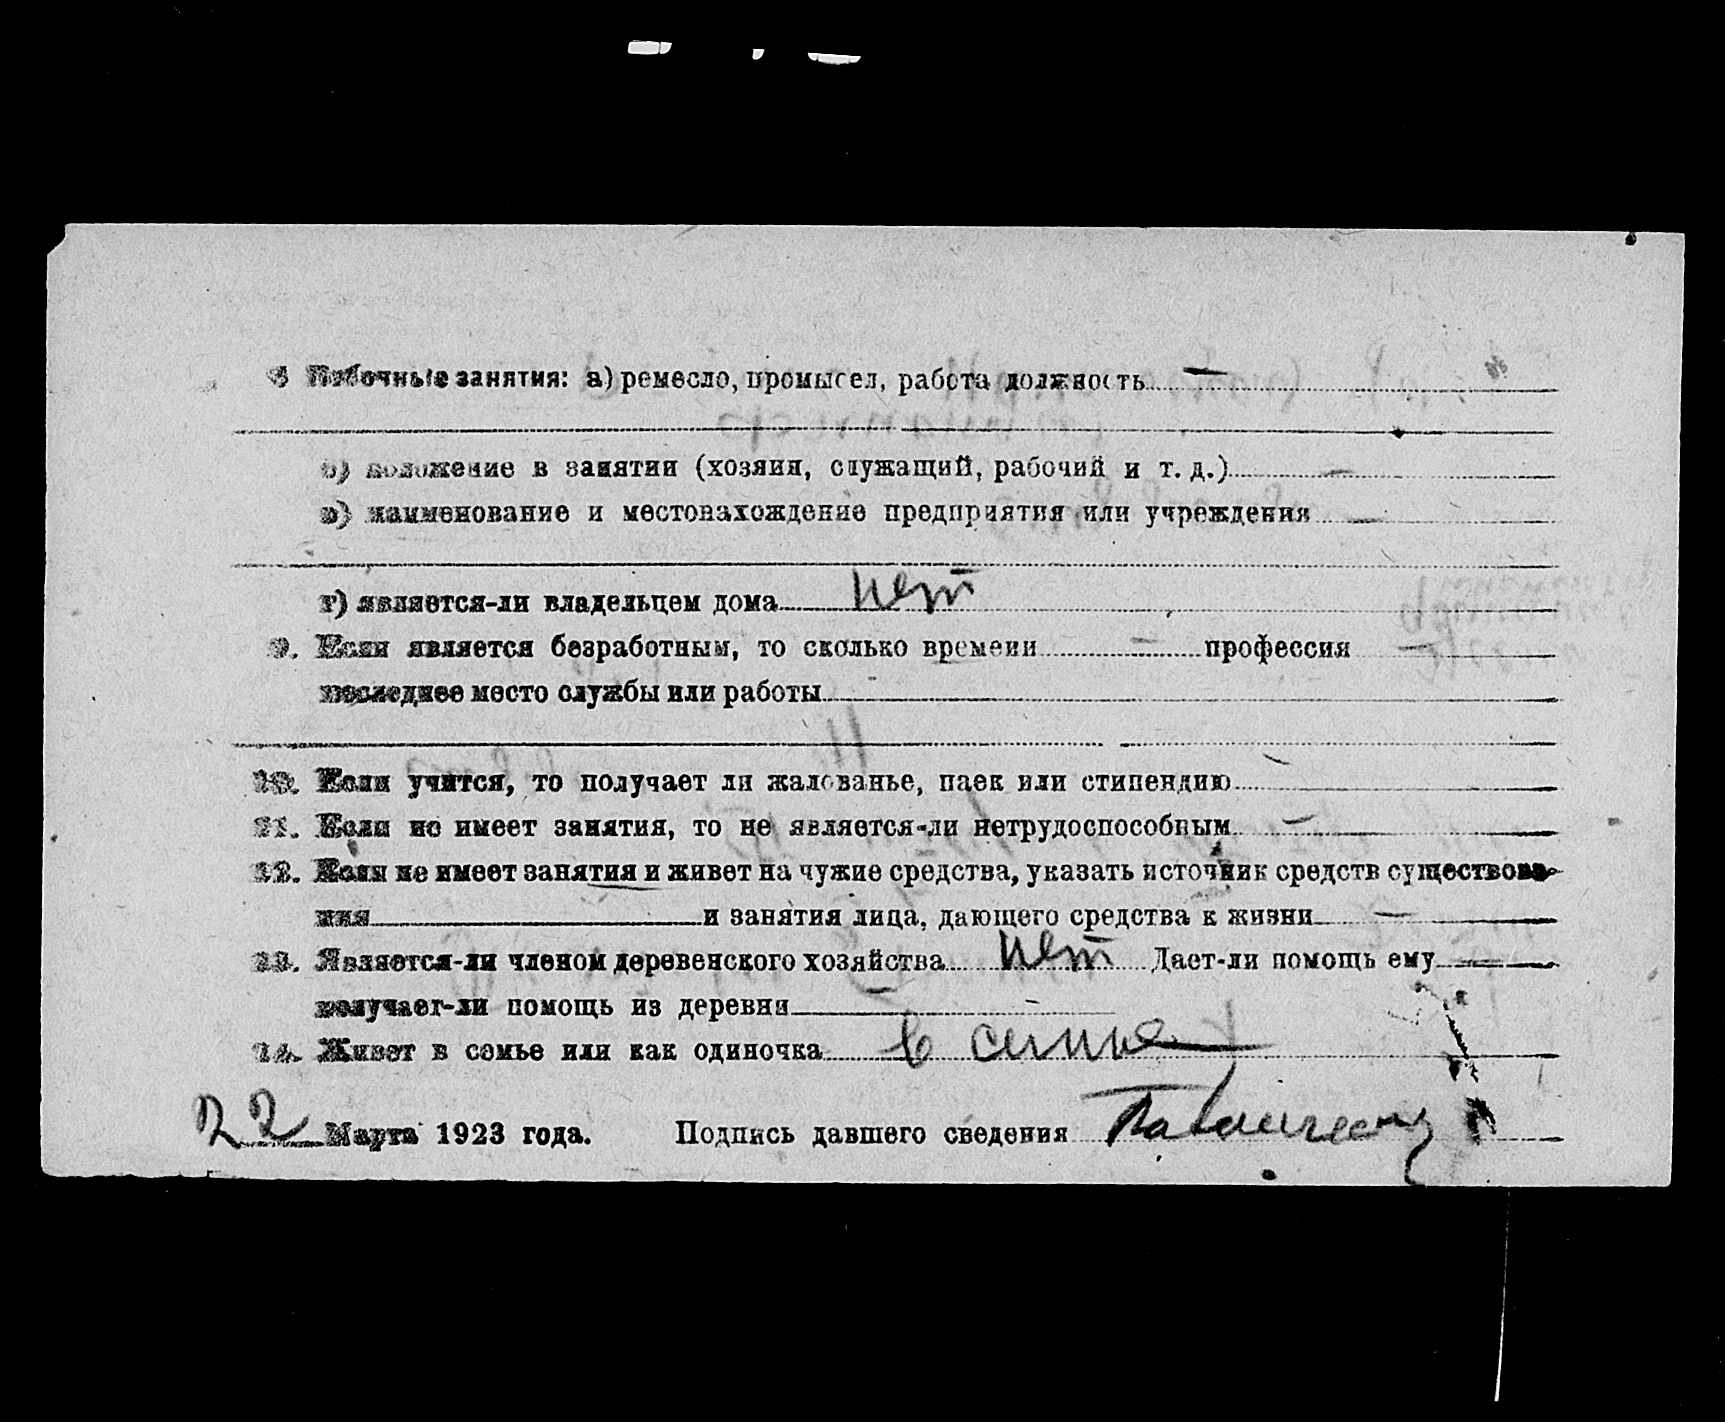 8 Побочные занятия: а) ремесло, промысел, работа должность —
б) положение в занятии (хозяин, служащий, рабочий и т. д.) —
в) наименование и местонахождение предприятия или учреждения —
г) является-ли владельцем дома нет
9. Если является безработным, то сколько времени — профессия —
последнее место службы или работы
10. Если учится, то получает ли жалованье, паек или стипендию —
11. Если не имеет занятия, то не является-ли нетрудоспособным —
12. Если не имеет занятия и живет на чужие средства, указать источник средств существова-
ния — и занятия лица, дающего средства к жизни —
13. Является-ли членом деревенского хозяйства нет Дает-ли помощь ему —
получает-ли помощь из деревни —
14. Живет в семье или как одиночка в семье
22 Марта 1923 года. Подпись давшего сведения